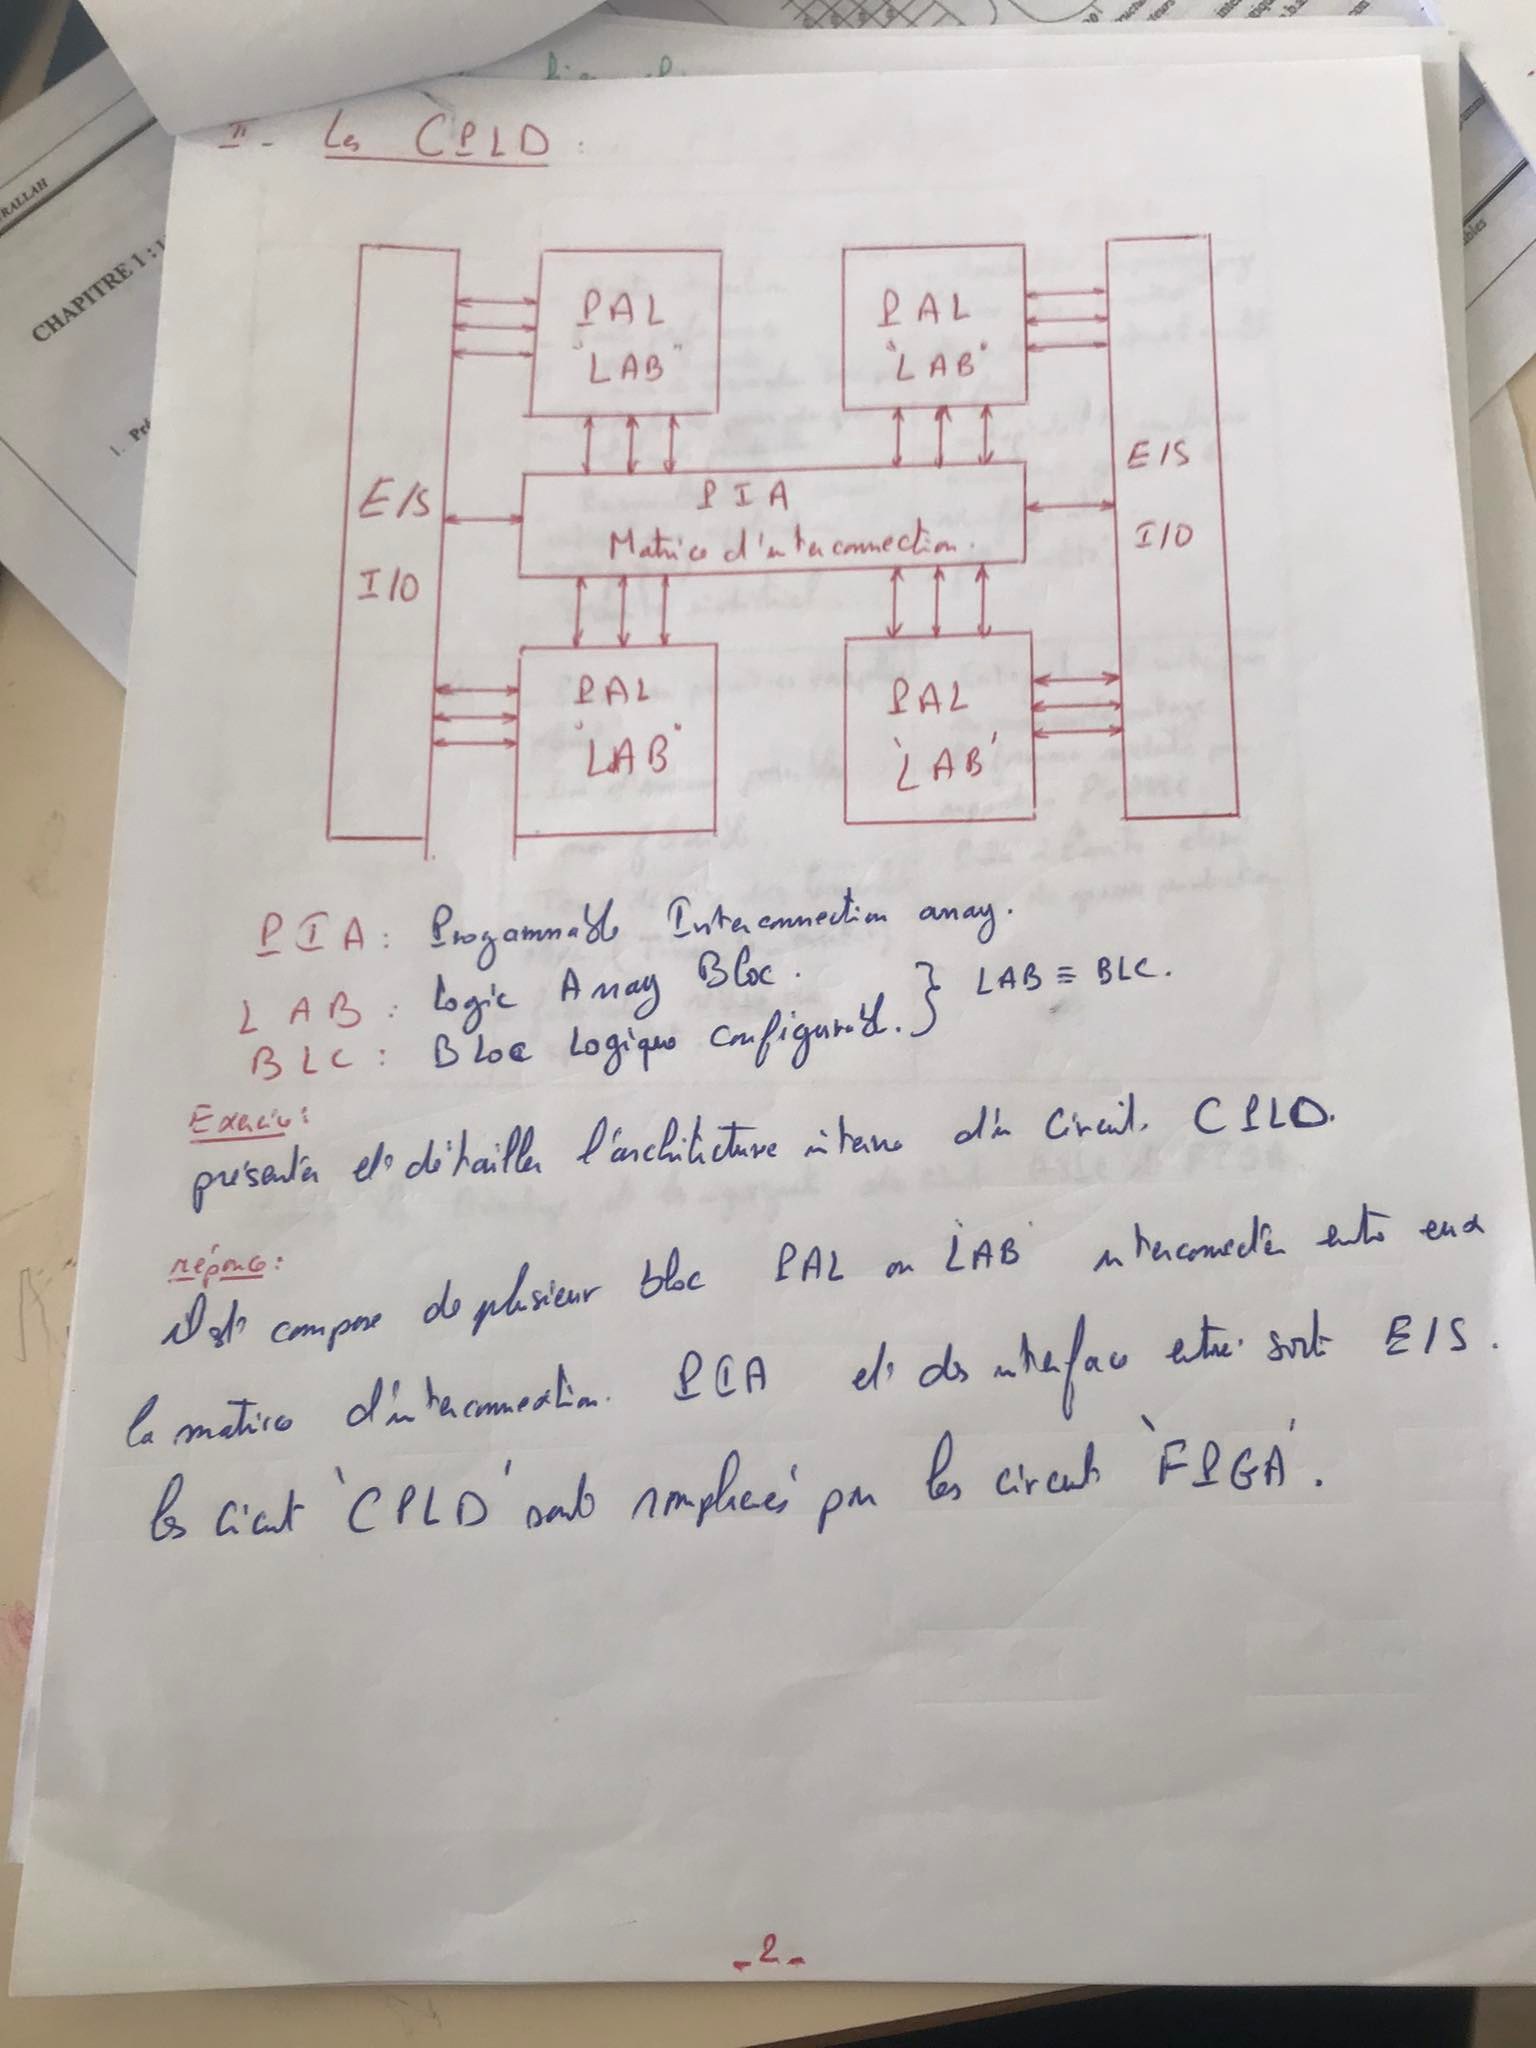 II - Les CPLD :
PAL
"LAB"
PAL
"LAB"
E/S
I/O
PIA
Matrice d'interconnection.
E/S
I/O
PAL
"LAB"
PAL
'LAB'
PIA : Progammable Interconnection array.
LAB : Logic Array Bloc.
BLC : Bloc Logique configurable. } LAB ≡ BLC.
Exercice :
présenter et détailler l'architecture interne d'un Circuit CPLD.
réponse :
il est compose de plusieur bloc PAL ou 'LAB' interconnectés entre eux
la matrice d'interconnextion. PIA et des interface entré sorti E/S.
les circuit 'CPLD' sont remplacés par les circuit 'FPGA'.
- 2 -
CHAPITRE 1 :
1. Pré
RALLAH